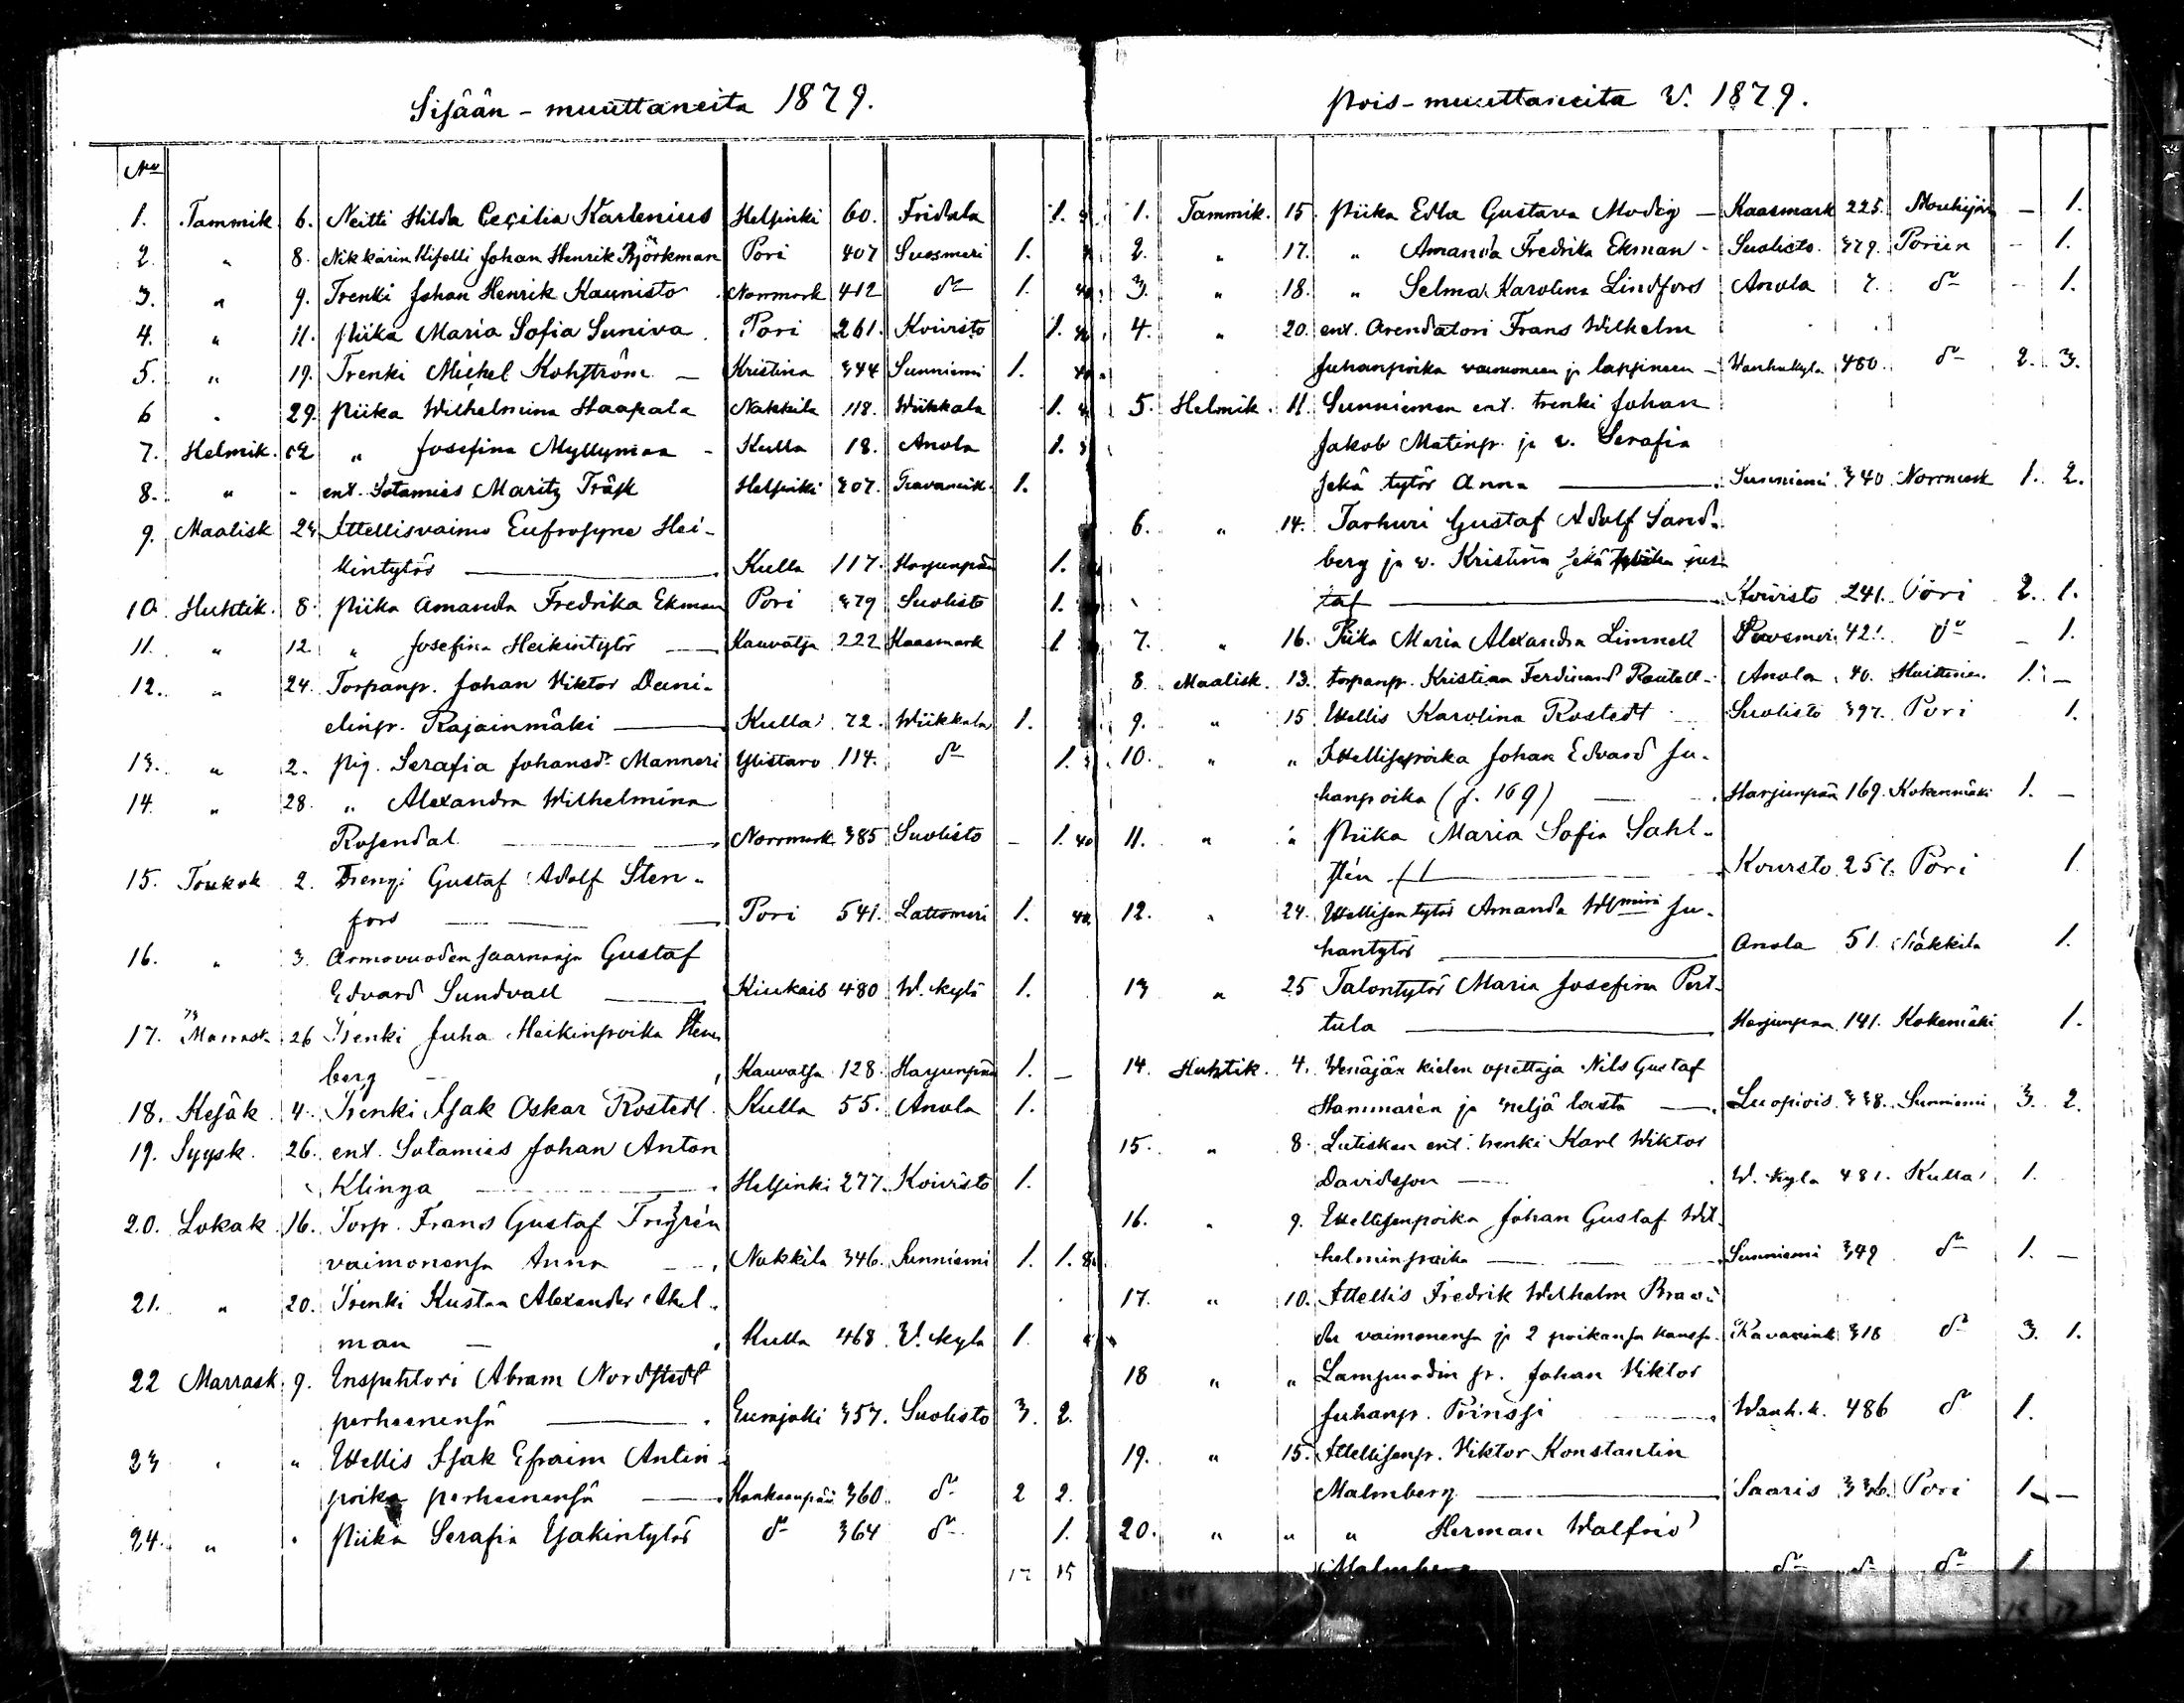 Sisään-muuttaneita 1879.
No
1. Tammik. 6. Neitti Hilda Cecilia Karlenius Helsinki 60. Fridala 1.
2. " 8. Nikkarin Kisälli Johan Henrik Björkman Pori 407 Suosmeri 1.
3. " 9. Trenki Johan Henrik Kaunisto Norrmark 412 do 1. 40
4. " 11. Piika Maria Sofia Suniva Pori 261. Koivisto 1.
5. " 19. Trenki Michel Kohström — Kristina 344 Sunniemi 1. 40
6 " 29. Piika Wilhelmina Haapala Nakkila 118. Wiikkala 1.
7. Helmik. " Josefina Myllymaa - Kulla 18. Anola 1.
8. " - ent. Sotamies Maritz Träsk Helsinki 307. Ravanink. 1.
9. Maalisk 24 Ittellisvaimo Eufrosyne Hei-
kintytös Kulla 117. Harjunpää 1.
10. Huhtik. 8. Piika Amanda Fredrika Ekman Pori 379 Suolisto 1.
11. " 12. " Josefina Heikintytös — Kauvatsa 222 Kaasmark 1
12. " 24. Torpanp. Johan Viktor Dani-
elinp. Rajainmäki — Kulla 72. Wiikkala 1.
13. " 2. Pig. Serafia Johansdr Manneri Ylistaro 114. do 1.
14. " 28. " Alexandra Wilhelmina
Rosendal — Norrmark 385 Suolisto - 1. 40
15. Toukok 2. Drengi Gustaf Adolf Sten-
fors — Pori 541. Lattomeri 1. 40
16. " 3. Armovuoden saarnaaja Gustaf
Edvard Sundvall — Kiukais 480 W. kylä 1.
17. Marrask 26 Trenki Juha Heikinpoika Sten
berg — Kauvatsa 128. Harjunpää 1. —
18. Kesäk. 4. Trenki Isak Oskar Rostedt. Kulla 55. Anola 1.
19. Syysk. 26. ent. Sotamies Johan Anton
Klinga — Helsinki 277. Koivisto 1.
20. Lokak. 16. Torp. Frans Gustaf
vaimonensa Anna — Nakkila 346. Sunniemi 1. 1.
21. " 20. Trenki Kustaa Alexander Ahl-
man — Kulla 468. V. kyla 1.
22 Marrask. 9. Inspehtori Abram Nordstedt
perheenensä — Eurajoki 357. Suolisto 3. 2.
23 " " Ittellis Isak Efraim Antin
poika perheenensä — Kankaanpää 360. do 2 2.
24. " " Piika Serafia Isakintytös do 364 do 1.
17 15
Pois-muuttaneita V. 1879.
1. Tammik. 15. Piika Edla Gustava Modig — Kaasmark 225. Mouhijär — 1.
2. " 17. " Amanda Fredrika Ekman - Suolisto. 379. Poriin - 1.
3. " 18. " Selma Karolina Lindfors Anola 7. do - 1.
4. " 20. ent. arendatori Frans Wilhelm
Juhanpoika vaimoneen ja lapsineen — Wanhakyla 460. do 2. 3.
5. Helmik. 11. Sunniemen ent. trenki Johan
Jakob Matinp. ja v. Serafia
sekä tytös Anna — Sunniemi 340 Norrmark 1. 2.
6. " 14. Tarhuri Gustaf Adolf Sand-
berg ja v. Kristina sekä
taf — Koivisto 241. Pori 2. 1.
7. " 16. Piika Maria Alexandra Limnell Suosmeri 421. do - 1.
8. Maalisk. 13. torpanp. Kristian Ferdinand Rautell - Anola 40. Huittinen. 1. —
9. " 15 Ittellis Karolina Rostedt Suolisto 397. Pori 1.
10. " " Ittellisepoika Johan Edvard Ju-
hanpoika (s. 169) — Harjunpää 169. Kokenmäki 1. —
11. " " Piika Maria Sofia Sahl-
stén — Koivisto 257. Pori 1
12. " 24. Ittellisen tytös Amanda Wlmina Ju-
hantytös — Anola 51. Nakkila 1.
13 " 25 Talontytös Maria Josefina Pert-
tula — Harjunpää 141. Kokemäki 1.
14. Huhtik. 4. Wenäjän kielen opettaja Nils Gustaf
Hammarén ja neljä lasta — Luopiois. 338. Sunniemi 3. 2.
15. " 8. ent. trenki Karl Wiktor
Davidsson — W. kyla 481. Kulla 1.
16. " 9. Ittellisenpoika Johan Gustaf Wil-
helmin poika — Sunniemi 349 do 1. —
17. " 10. Ittellis Fredrik Wilhelm
vaimonensa ja 2 poikansa kanssa. Ravanink. 318 do 3. 1.
18 " " Lampuodin p. Johan Viktor
Juhanp. Prinssi — Wanh. k. 486 do 1.
19. " 15. Ittellisenp. Viktor Konstantin
Malmberg — Saaris 336. Pori 1. —
20. " " " Herman Walfrid
Malmberg do do do 1